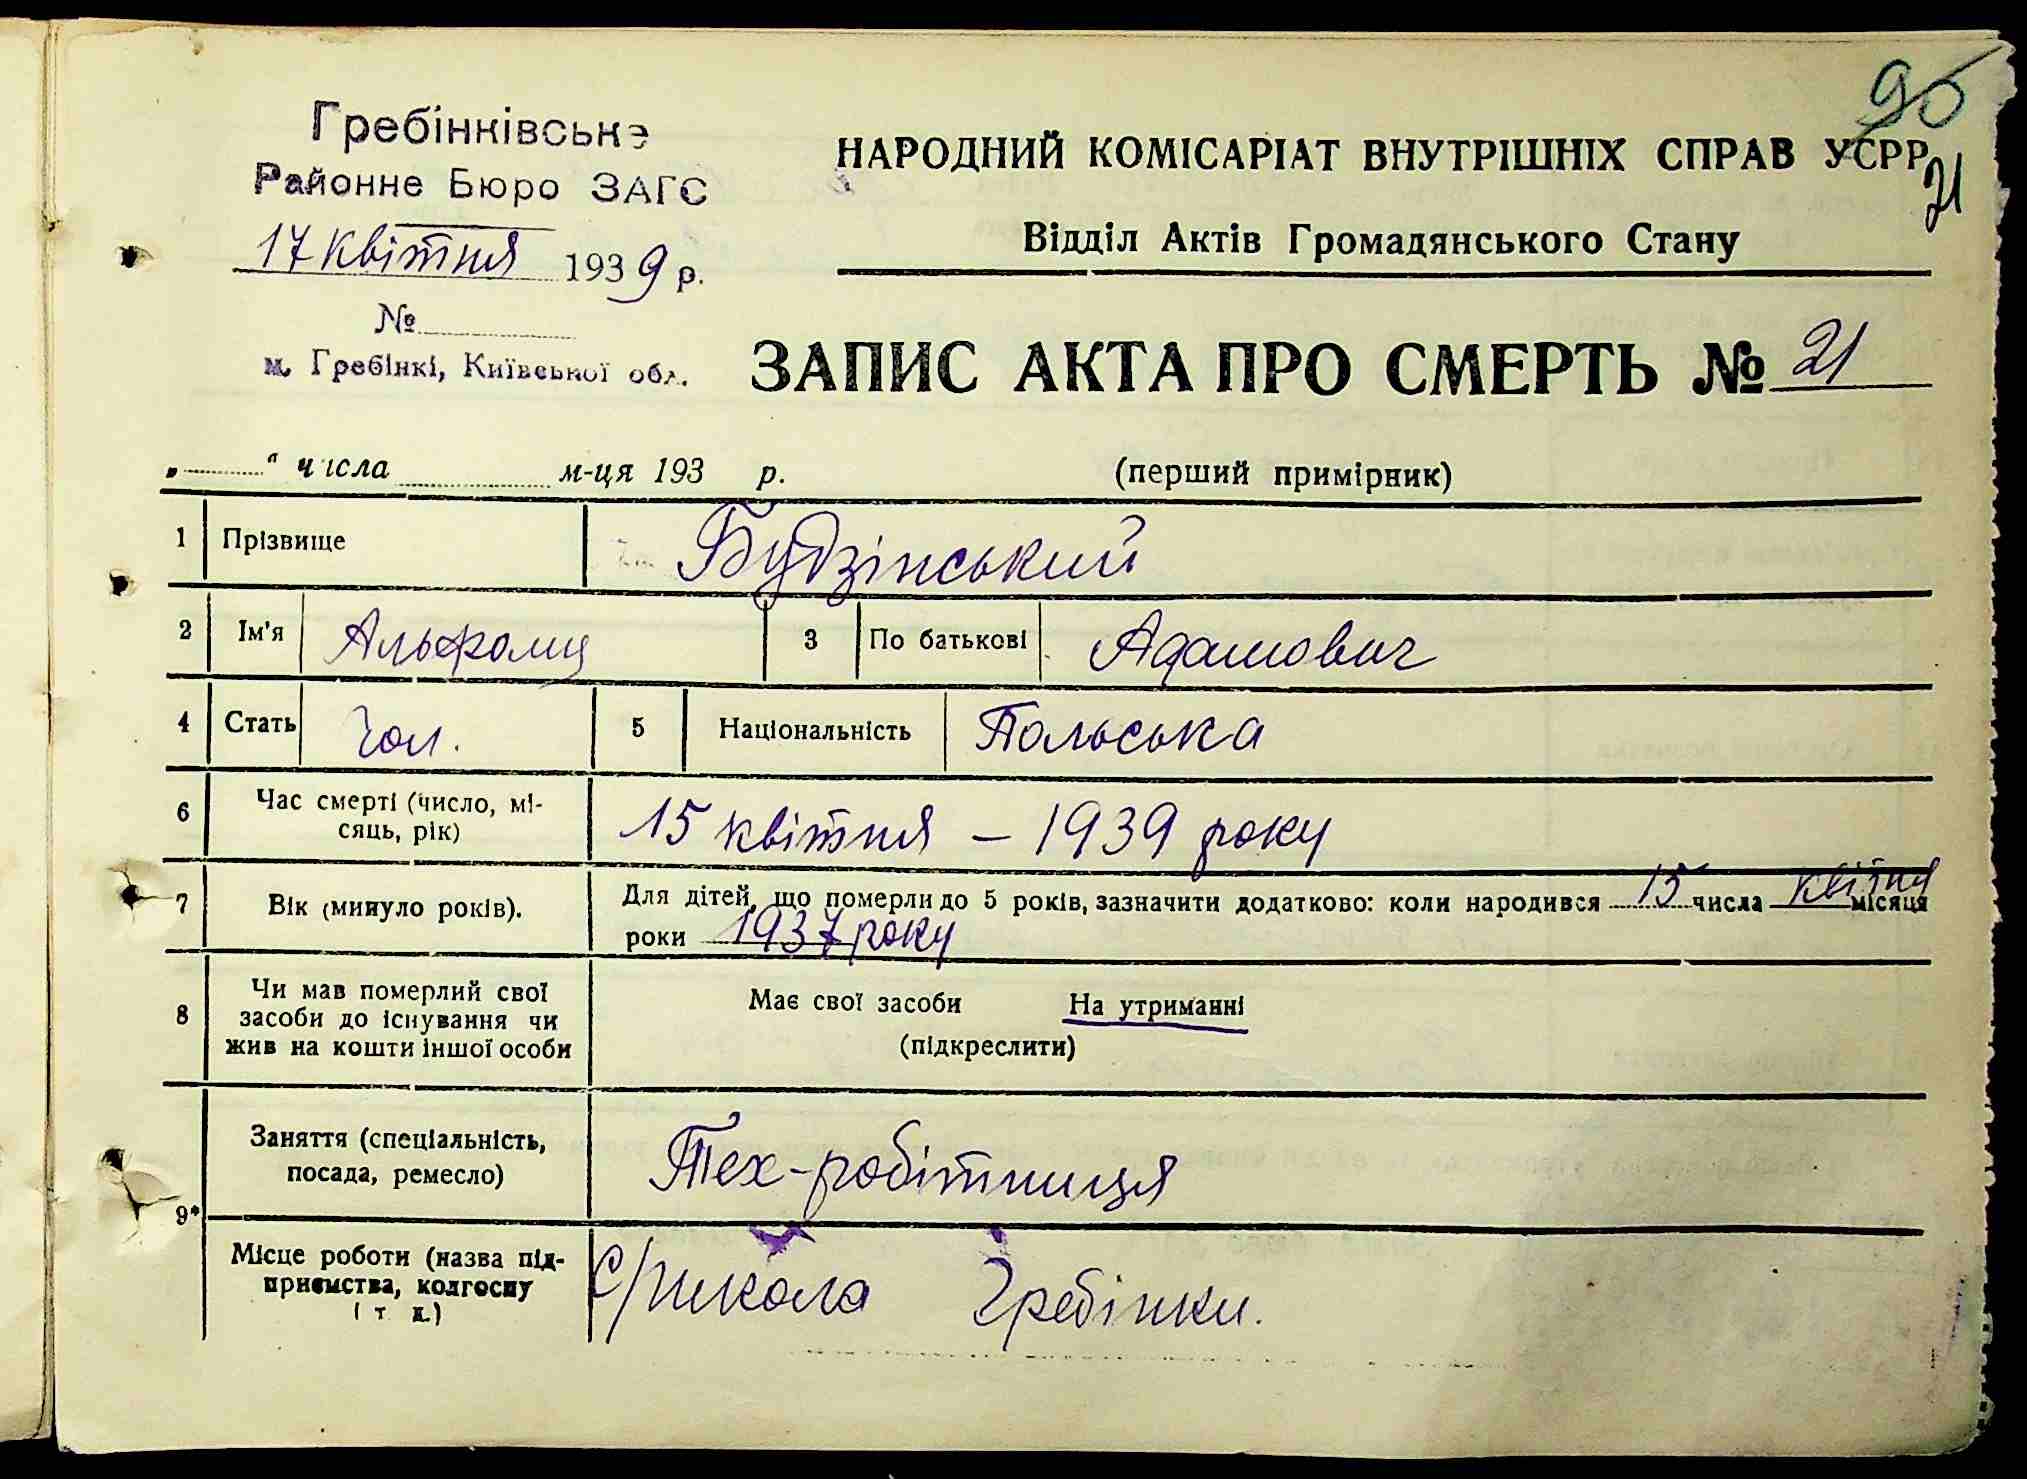 95
21
Гребінківське
Районне Бюро ЗАГС
17 квітня 1939 р.
№
м. Гребінкі, Київської обл.
НАРОДНИЙ КОМІСАРІАТ ВНУТРІШНІХ СПРАВ УСРР
Відділ Актів Громадянського Стану
ЗАПИС АКТА ПРО СМЕРТЬ № 21
„ “ числа м-ця 193 р. (перший примірник)
1 Прізвище Будзінський
2 Ім'я 3 По батькові Адамович
4 Стать Чол. 5 Національність Польська
6 Час смерті (число, мі-
сяць, рік) 15 квітня – 1939 року
7 Вік (минуло років). Для дітей, що померли до 5 років, зазначити додатково: коли народився 15 числа квітня місяця
роки 1937 року
8 Чи мав померлий свої
засоби до існування чи
жив на кошти іншої особи
Має свої засоби На утриманні
(підкреслити)
9* Заняття (спеціальність,
посада, ремесло) Тех-робітниця
Місце роботи (назва під-
приємства, колгоспу
і т д.) с/школа Гребінки.